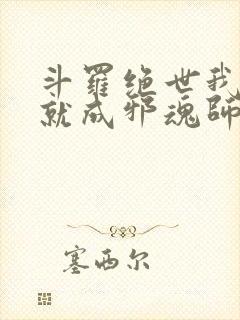 斗羅绝世我
就成邪魂師
塞西尔